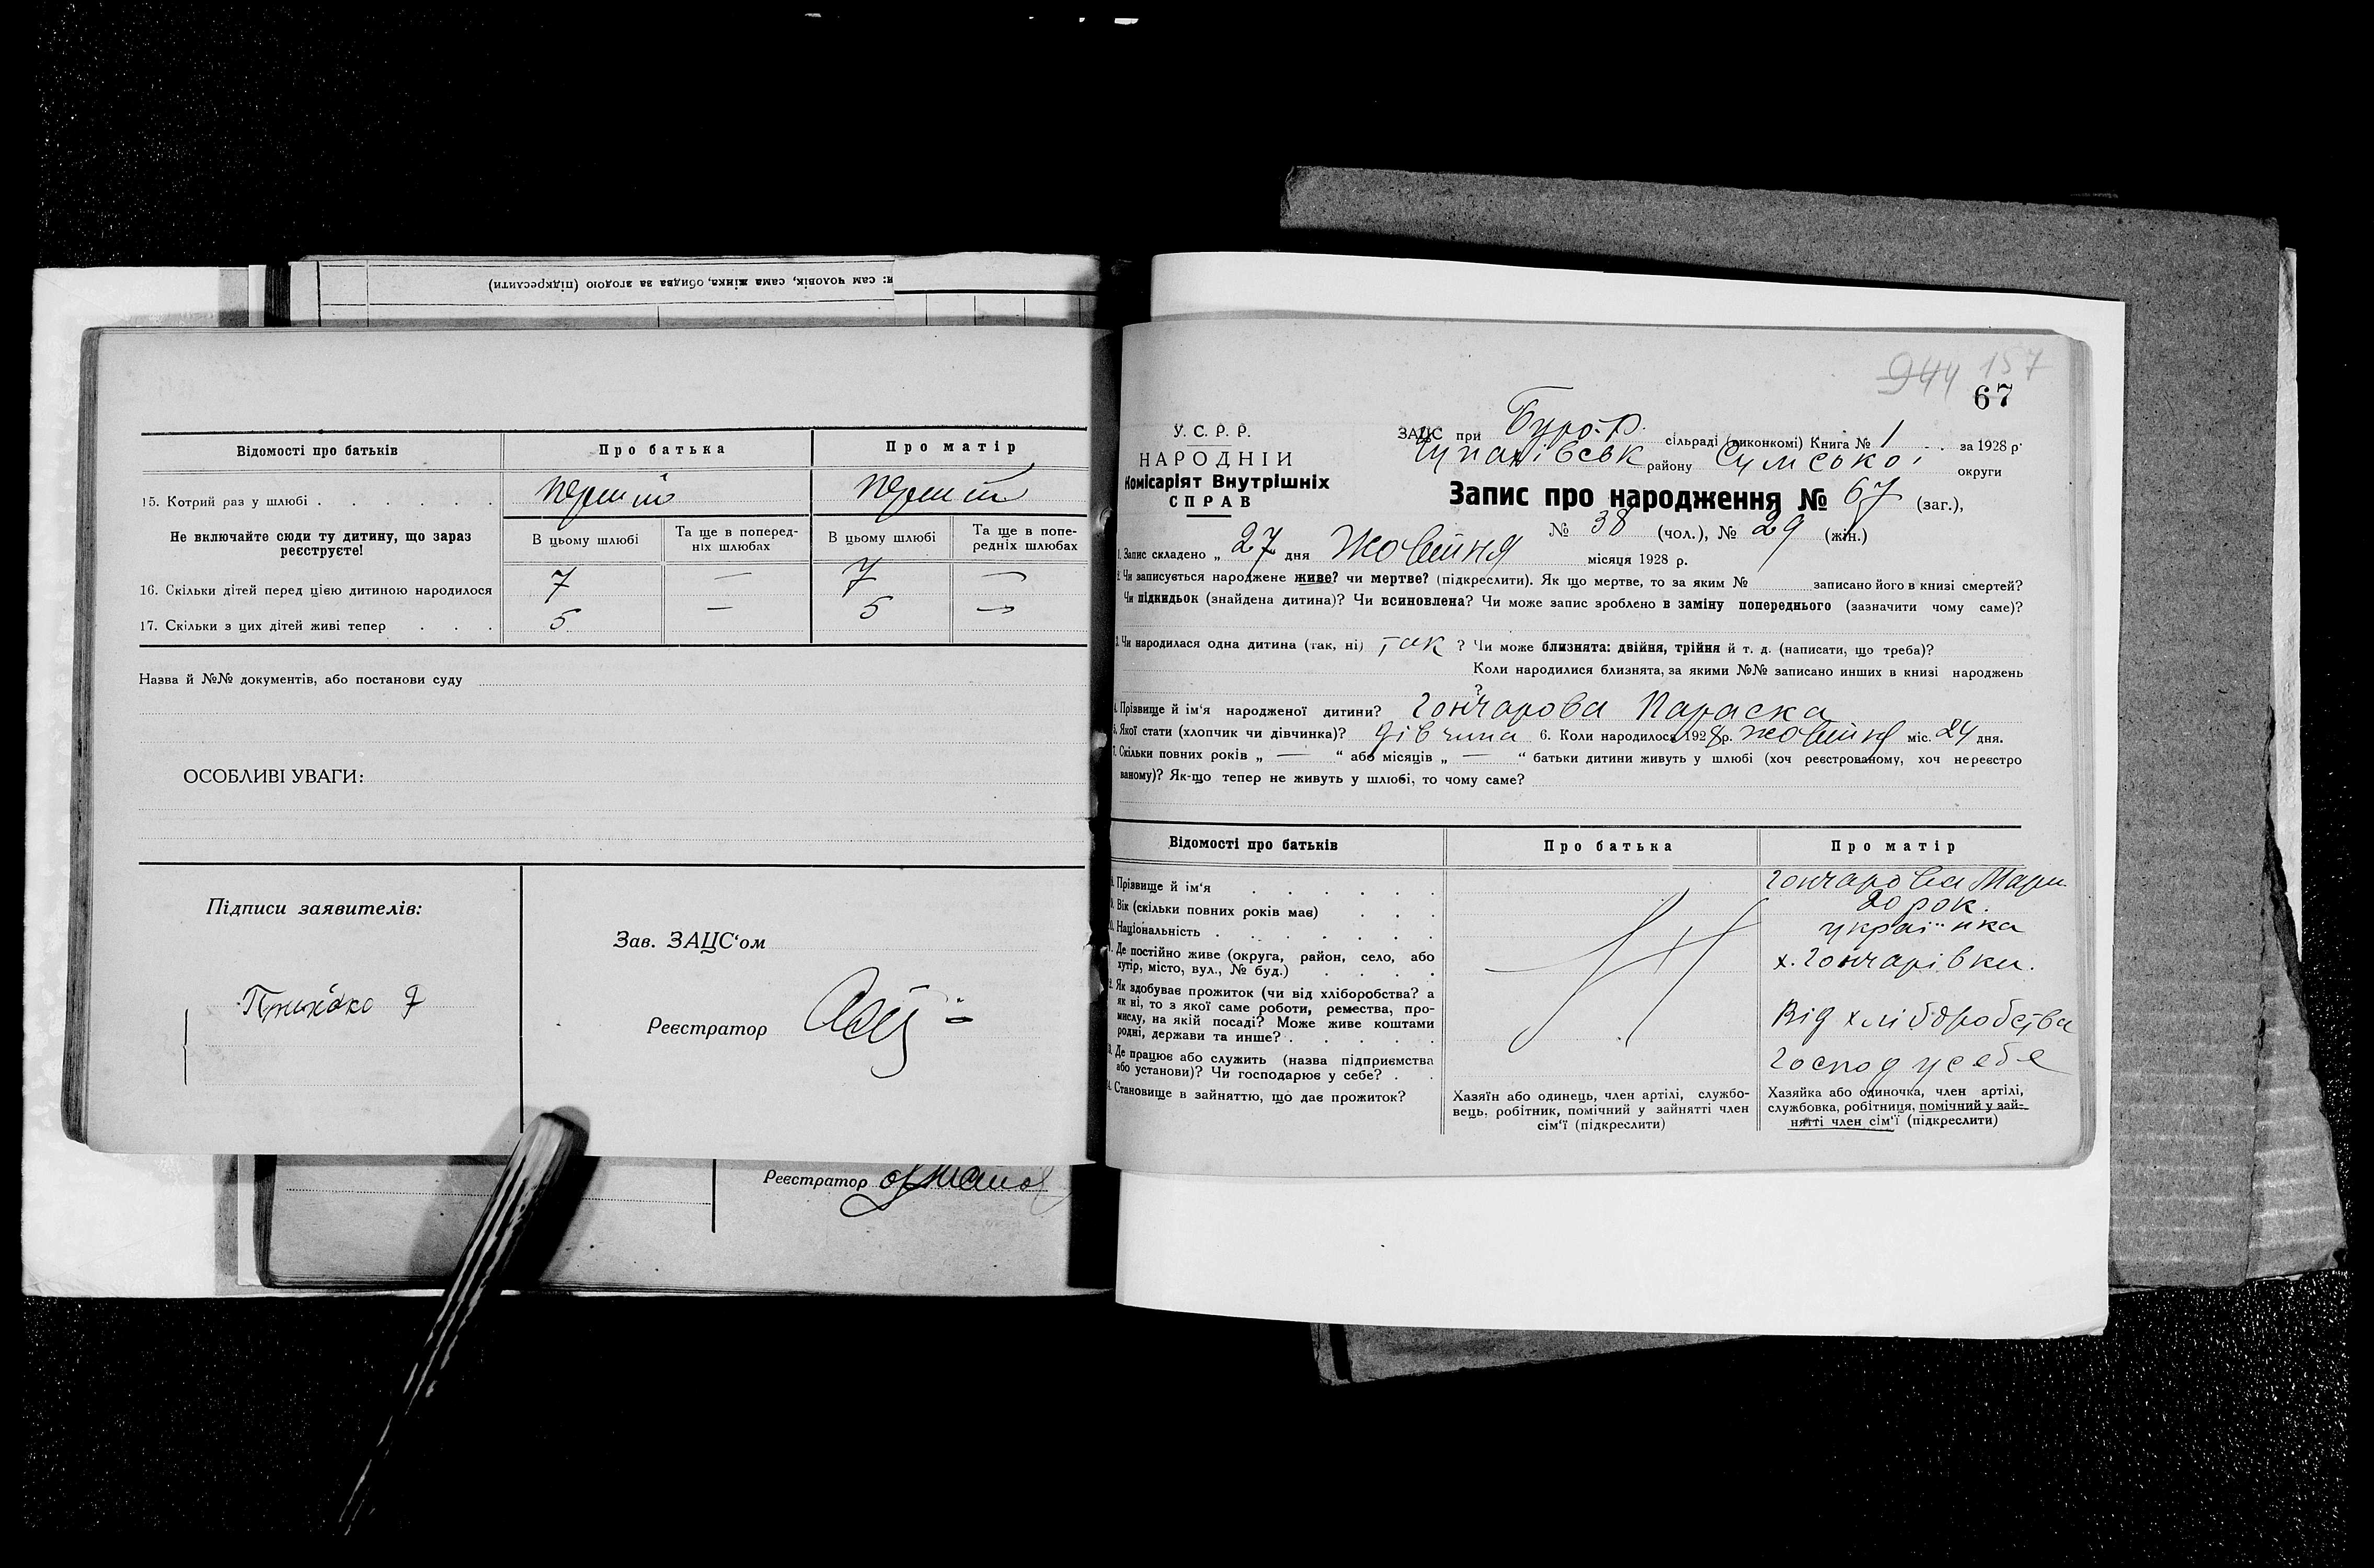 и: сам чоловік, сама жінка, обидва за згодою (підкреслити)
Відомості про батьків
Про батька
Про матір
15. Котрий раз у шлюбі . . . . . .
перший
перший
Не включайте сюди ту дитину, що зараз реєструєте!
В цьому шлюбі
Та ще в поперед-
ніх шлюбах
В цьому шлюбі
Та ще в попе-
редніх шлюбах
16. Скільки дітей перед цією дитиною народилося
7 — 7 —
17. Скільки з цих дітей живі тепер . . .
5 — 5 —
Назва й №№ документів, або постанови суду
ОСОБЛИВІ УВАГИ:
Підписи заявителів:
Зав. ЗАЦС'ом
Реєстратор
Реєстратор
944 157
67
У. С. Р. Р.
НАРОДНІЙ
Комісаріят Внутрішніх
СПРАВ
ЗАЦС при сільраді (виконкомі) Книга № 1 за 1928 р.
Чупахівськ району Сумської округи
Запис про народження № 67 (заг.),
№ 38 (чол.), № 29 (жін.)
1. Запис складено „ 27 дня Жовтня місяця 1928 р.
2. Чи записується народжене живе? чи мертве? (підкреслити). Як що мертве, то за яким № записано його в книзі смертей?
Чи підкидьок (знайдена дитина)? Чи всиновлена? Чи може запис зроблено в заміну попереднього (зазначити чому саме)?
3. Чи народилася одна дитина (так, ні) так ? Чи може близнята: двійня, трійня й т. д. (написати, що треба)?
Коли народилися близнята, за якими №№ записано инших в книзі народжень
?
4. Прізвище й ім'я народженої дитини? Гончарова Параска
5. Якої стати (хлопчик чи дівчинка)? дівчина 6. Коли народилось 1928 р. жовтня міс. 24 дня.
7. Скільки повних років „ — “ або місяців „ — “ батьки дитини живуть у шлюбі (хоч реєстрованому, хоч нереєстро
ваному)? Як-що тепер не живуть у шлюбі, то чому саме?
Відомості про батьків
Про батька
Про матір
8. Прізвище й ім'я . . . . . .
Гончарова Мари
9. Вік (скільки повних років має) . . .
20 рок.
10. Національність . . . . . . .
українка
11. Де постійно живе (округа, район, село, або
хутір, місто, вул., № буд.) . . . .
х. Гончарівки.
12. Як здобуває прожиток (чи від хліборобства? а
як ні, то з якої саме роботи, ремества, про-
мислу, на якій посаді? Може живе коштами
родні, держави та инше? . . . . .
Від хліборобства
13. Де працює або служить (назва підприємства
або установи)? Чи господарює у себе? . .
господ у себе
14. Становище в зайняттю, що дає прожиток?
Хазяїн або одинець, член артілі, службо-
вець, робітник, помічний у зайнятті член
сім'ї (підкреслити)
Хазяйка або одиночка, член артілі,
службовка, робітниця, помічний у зай-
нятті член сім'ї (підкреслити)